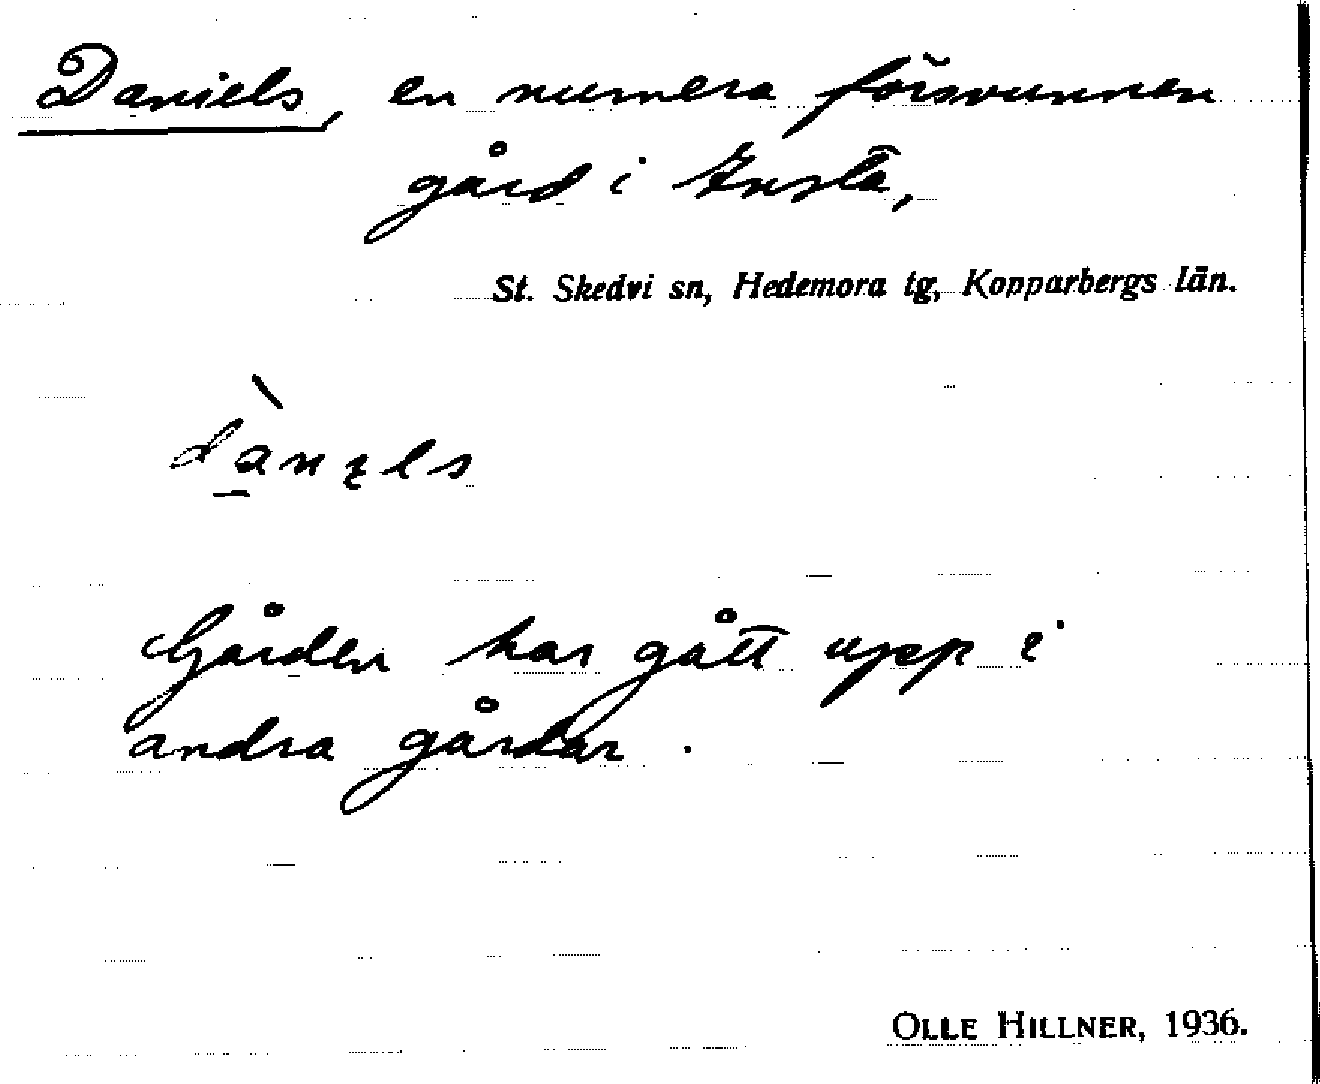 Daniels, en numera försvunnen
gård i Knsta,
St. Skedvi sn, Hedemora tg, Kopparbergs län.
Gården har gått upp i
andra gårdar.
OLLE HILLNER, 1936.